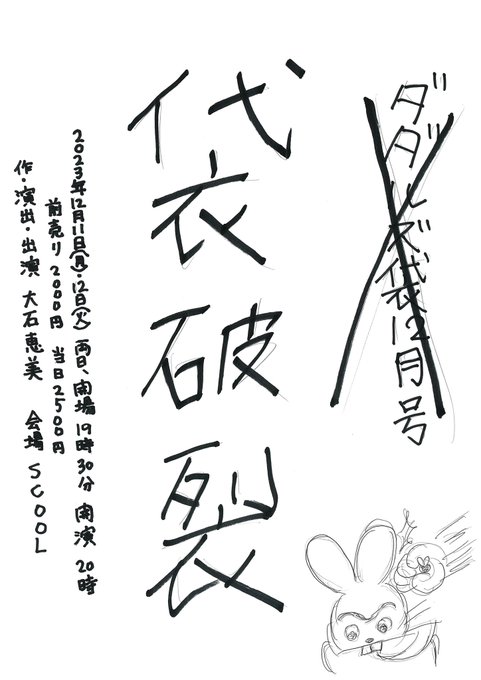 ダダルズ袋12月号
袋破裂
2023年12月11日(月)・12日(火)両日、開場19時30分 開演20時
前売り2000円 当日2500円
作・演出・出演 大石恵美 会場 SCOOL